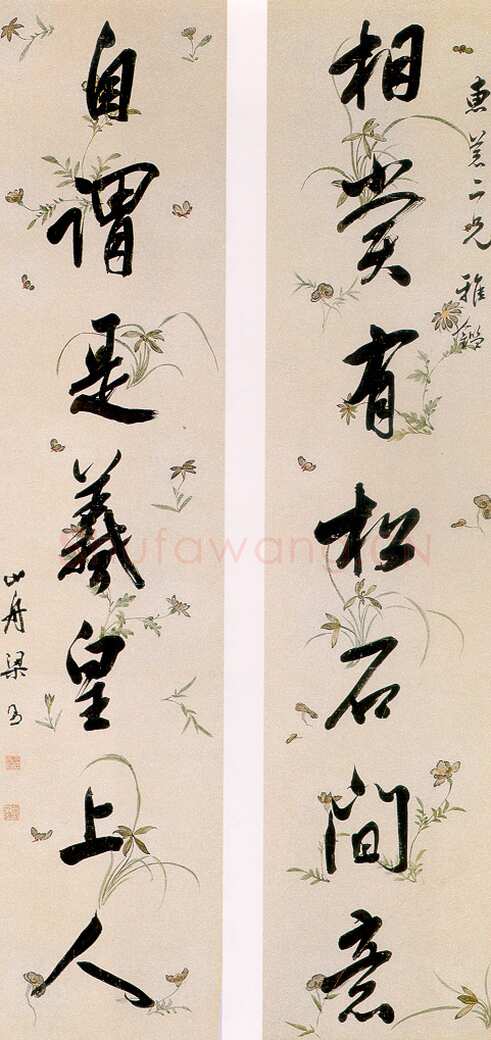 惠菴二兄雅鑑
相賞有松石間意
自謂是羲皇上人
山舟梁
Shufawang.CN